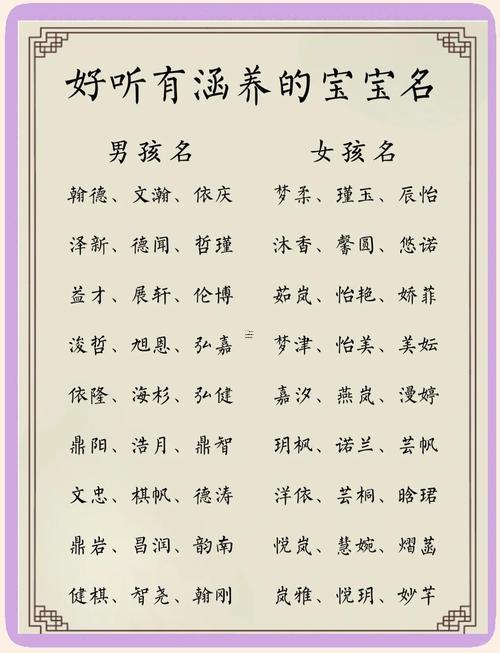 好听有涵养的宝宝名
男孩名 女孩名
翰德、文瀚、依庆 梦柔、瑾玉、辰怡
泽新、德闻、哲瑾 沐香、馨圆、悠诺
益才、展轩、伦博 茹岚、怡艳、娇菲
浚哲、旭恩、弘嘉 梦津、怡美、美妘
依隆、海杉、弘健 嘉汐、燕岚、漫婷
鼎阳、浩月、鼎智 玥枫、诺兰、芸帆
文忠、棋帆、德涛 洋依、芸桐、晗珺
鼎岩、昌润、韵南 悦岚、慧婉、熠菡
健棋、智尧、翰刚 岚雅、悦玥、妙芊